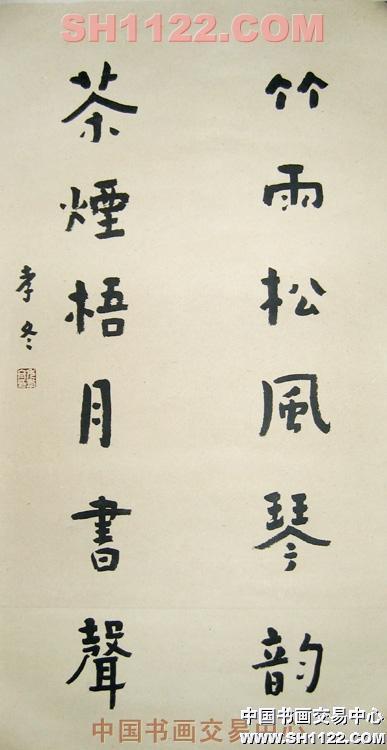 SH1122.COM
竹雨松風琴韵
茶煙梧月書聲
李冬
中国书画交易中心
中国书画交易中心
www.SH1122.COM